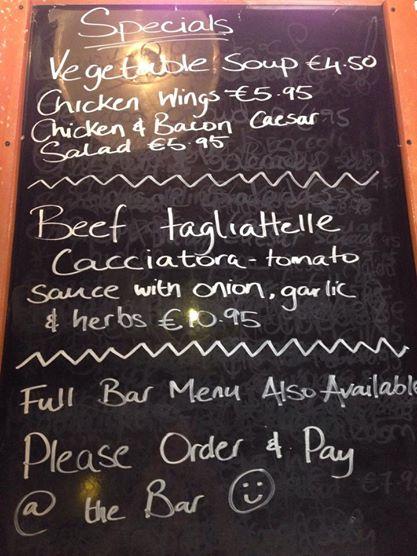 Specials
Vegetable Soup €4.50
Chicken Wings €5.95
Chicken & Bacon Caesar
Salad €5.95
Beef tagliattelle
Cacciatora - tomato
sauce with onion, garlic
& herbs €10.95
Full Bar Menu Also Available
Please Order & Pay
@ the Bar ☺